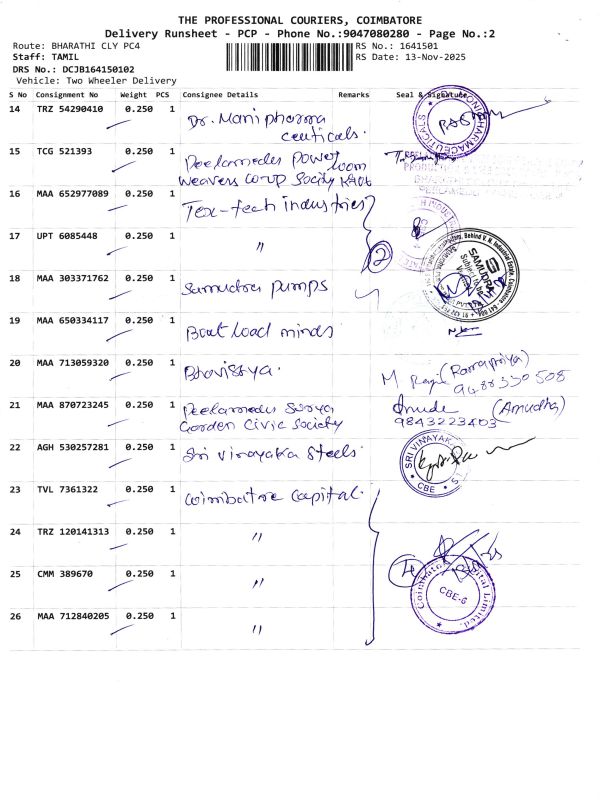 THE PROFESSIONAL COURIERS, COIMBATORE
Delivery Runsheet - PCP - Phone No.:9047080280 - Page No.:2
Route: BHARATHI CLY PC4
RS No.: 1641501
Staff: TAMIL
RS Date: 13-Nov-2025
DRS No.: DCJB164150102
Vehicle: Two Wheeler Delivery
S No Consignment No Weight PCS Consignee Details Remarks Seal & Signature
14 TRZ 54290410 0.250 1 Dr. Mani pharma
ceuticals.
15 TCG 521393 0.250 1 Peelamedu Power loom
Weavers co-up Socity
16 MAA 652977089 0.250 1 Tex-tech industries
17 UPT 6085448 0.250 1 "
2
18 MAA 303371762 0.250 1 Samudra pumps
SAMUDRA
19 MAA 650334117 0.250 1 Boat load minds
20 MAA 713059320 0.250 1 Bhavisya.
M Ragi (Ramapriya)
9488330508
21 MAA 870723245 0.250 1 Peelamedu Surya
Garden Civic Society
Anude (Amudha)
9843223403
22 AGH 530257281 0.250 1 Sri vinayaka Steels.
SRI VINAYAKA
CBE
23 TVL 7361322 0.250 1 Coimbatore Capital.
24 TRZ 120141313 0.250 1 "
25 CMM 389670 0.250 1 "
Coimbatore Capital Limited.
CBE-6
26 MAA 712840205 0.250 1 "